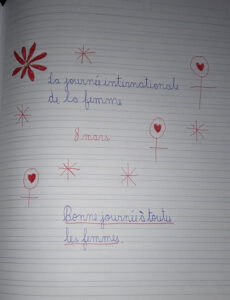 La journée international
de la femme
8 mars
Bonne journée à toute
les femmes.